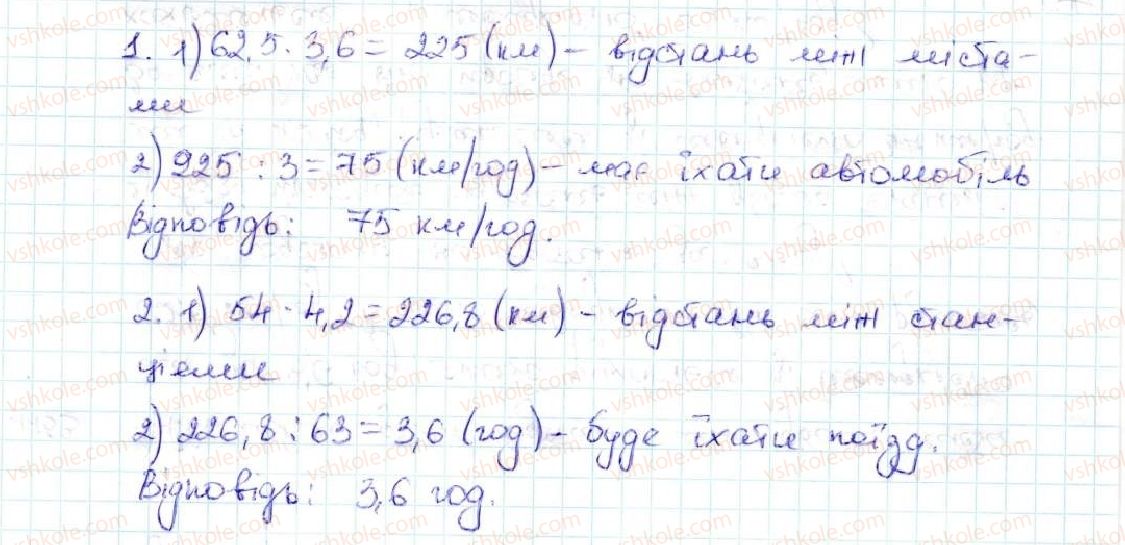 1. 1) 62,5 · 3,6 = 225 (км) – відстань між міста-
ми
2) 225 : 3 = 75 (км/год) – має їхати автомобіль
Відповідь: 75 км/год.
2. 1) 54 · 4,2 = 226,8 (км) – відстань між стан-
ціями
2) 226,8 : 63 = 3,6 (год) – буде їхати поїзд.
Відповідь: 3,6 год.